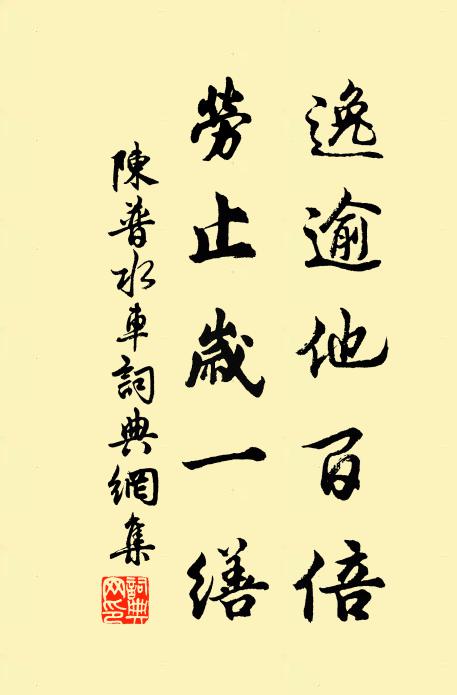 逸逾他百倍
勞止歲一繕
陳普水車詞典網集
詞典網印